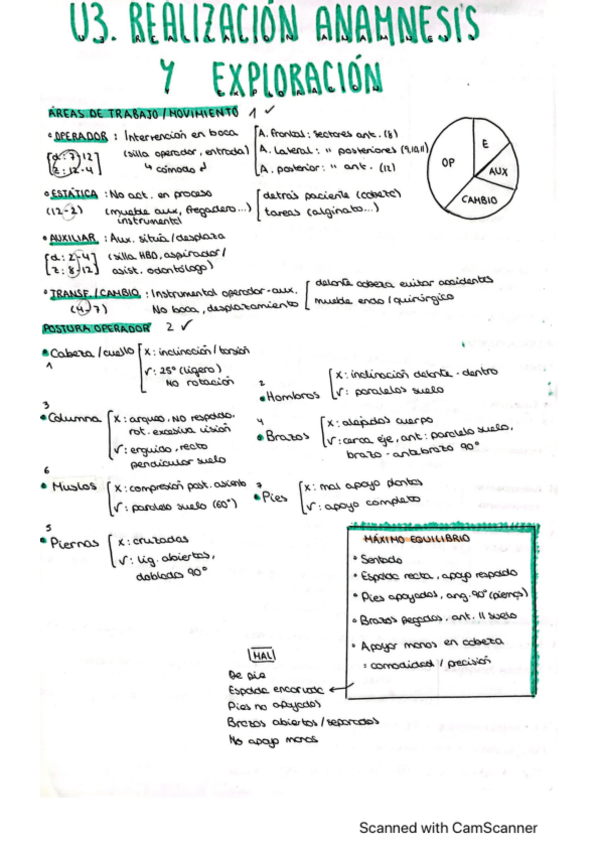 U3. REALIZACIÓN ANAMNESIS
Y EXPLORACIÓN
ÁREAS DE TRABAJO / MOVIMIENTO 1 ✓
• OPERADOR : Intervención en boca
[d: 7-12
z: 12-4]
(silla operador, entrada)
↳ cómodo
[A. Frontal: sectores ant. (8)
A. Lateral: " posteriores (9,10,11)
A. posterior: " ant. (12)
OP
E
AUX
CAMBIO
• ESTÁTICA : No act. en proceso
(12-2) (mueble aux, fregadero...)
instrumental
[detrás paciente (cabeza)
tareas (alginato...)
• AUXILIAR : Aux. situa / desplaza
[d: 2-4
z: 8-12] (silla HBD, aspirador /
asist. odontólogo)
• TRANSF. / CAMBIO : Instrumental operador - aux.
(4-7) No boca, desplazamiento
[delante cabeza evitar accidentes
mueble endo / quirúrgico
POSTURA OPERADOR 2 ✓
• Cabeza / cuello
1
[x: inclinación / torsión
v: 25° (ligero)
NO rotación
2
• Hombros
[x: inclinación delante - dentro
v: paralelos suelo
3
• Columna
[x: arqueo, NO respaldo,
rot. excesiva visión
v: erguido, recto
pendicular suelo
4
• Brazos
[x: alejados cuerpo
v: cerca eje, ant: paralelo suelo,
brazo - antebrazo 90°
6
• Muslos
[x: compresión post. asiento
v: paralelo suelo (60°)
7
• Pies
[x: mal apoyo plantas
v: apoyo completo
5
• Piernas
[x: cruzadas
v: lig. abiertas,
doblada 90°
MÁXIMO EQUILIBRIO
• Sentado
• Espalda recta, apoyo respaldo
• Pies apoyados, ang. 90° (piernas)
• Brazos pegados, ant. || suelo
• Apoyar manos en cabeza
= comodidad / precisión
MAL
De pie
Espalda encorvada ←
Pies no apoyados
Brazos abiertos / separados
No apoyo manos
Scanned with CamScanner